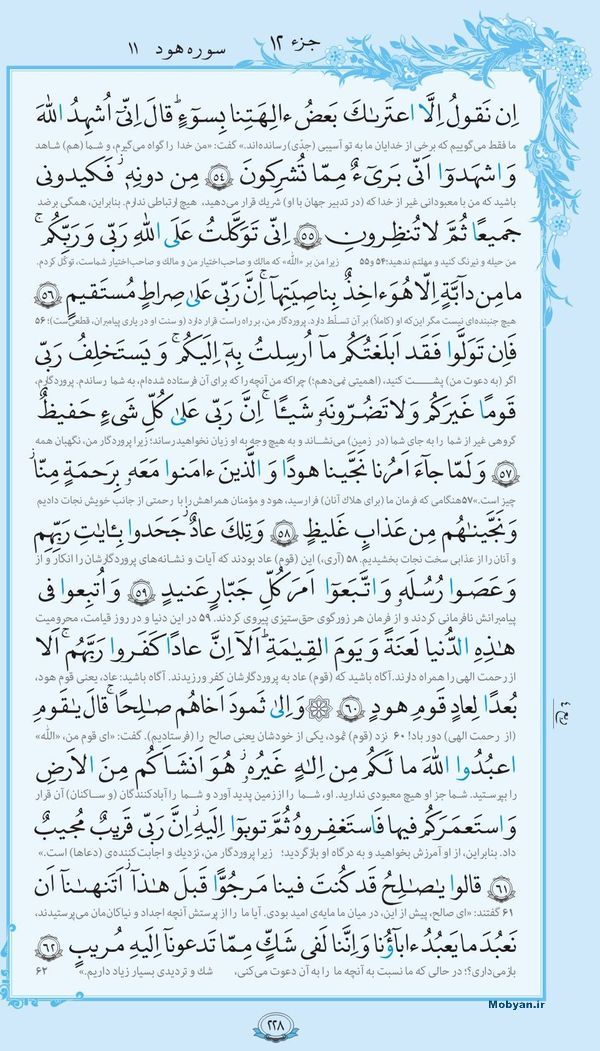 جزء ۱۲
سوره هود ۱۱
اِن نَقولُ اِلَّا اعتَرىٰكَ بَعضُ ءالِهَتِنا بِسوءٍ ۗ قالَ اِنّى اُشهِدُ اللّٰهَ
ما فقط می‌گوییم که برخی از خدایان ما به تو آسیبی (جدّی) رسانده‌اند.» گفت: «من خدا را گواه می‌گیرم، و شما (هم) شاهد
وَ اشهَدوا اَنّى بَرىءٌ مِمّا تُشرِكونَ ﴿٥٤﴾ مِن دونِهٖ ۖ فَكيدونى
باشید که من با معبودانی غیر از خدا که (در تدبیر جهان با او) شریک قرار می‌دهید، هیچ ارتباطی ندارم. بنابراین، همگی برضد
جَميعًا ثُمَّ لا تُنظِرونِ ﴿٥٥﴾ اِنّى تَوَكَّلتُ عَلَى اللّٰهِ رَبّى وَ رَبِّكُم ۚ
من حیله و نیرنگ کنید و مهلتم ندهید؛ ۵۴ و ۵۵ زیرا من بر «الله» که مالک و صاحب‌اختیار من و مالک و صاحب‌اختیار شماست، توکّل کردم.
ما مِن دآبَّةٍ اِلّا هُوَ ءاخِذٌ بِناصِيَتِهآ ۚ اِنَّ رَبّى عَلىٰ صِراطٍ مُستَقيمٍ ﴿٥٦﴾
هیچ جنبنده‌ای نیست مگر این‌که او (کاملاً) بر آن تسلّط دارد. پروردگار من، بر راه راست قرار دارد (و سنت او در یاری پیامبران، قطعی‌ست)؛ ۵۶
فَاِن تَوَلَّوا فَقَد اَبلَغتُكُم مآ اُرسِلتُ بِهٖٓ اِلَيكُم ۚ وَ يَستَخلِفُ رَبّى
اگر (به دعوت من) پشت کنید، (اهمیتی نمی‌دهم؛) چراکه من آنچه را که برای آن فرستاده شده‌ام، به شما رساندم. پروردگارم،
قَومًا غَيرَكُم وَ لا تَضُرّونَهٗ شَيـًٔا ۚ اِنَّ رَبّى عَلىٰ كُلِّ شَىءٍ حَفيظٌ
گروهی غیر از شما را به جای شما (در زمین) می‌نشاند و به هیچ وجه به او زیان نخواهید رساند؛ زیرا پروردگار من، نگهبان همه
﴿٥٧﴾ وَ لَمّا جآءَ اَمرُنا نَجَّينا هودًا وَ الَّذينَ ءامَنوا مَعَهٗ بِرَحمَةٍ مِنّا
چیز است.» ۵۷ هنگامی که فرمان ما (برای هلاک آنان) فرا رسید، هود و مؤمنان همراهش را با رحمتی از جانب خویش نجات دادیم
وَ نَجَّينٰهُم مِن عَذابٍ غَليظٍ ﴿٥٨﴾ وَ تِلكَ عادٌ ۖ جَحَدوا بِـٔايٰتِ رَبِّهِم
و آنان را از عذابی سخت نجات بخشیدیم. ۵۸ (آری،) این (قوم) عاد بودند که آیات و نشانه‌های پروردگارشان را انکار و از
وَ عَصَوا رُسُلَهٗ وَ اتَّبَعوٓا اَمرَ كُلِّ جَبّارٍ عَنيدٍ ﴿٥٩﴾ وَ اُتبِعوا فى
پیامبرانش نافرمانی کردند و از فرمان هر زورگوی حق‌ستیزی پیروی کردند. ۵۹ در این دنیا و در روز قیامت، محرومیت
هٰذِهِ الدُّنيا لَعنَةً وَ يَومَ القِيٰمَةِ ۗ اَلآ اِنَّ عادًا كَفَروا رَبَّهُم ۗ اَلا
از رحمت الهی را همراه دارند. آگاه باشید که (قوم) عاد به پروردگارشان کفر ورزیدند. آگاه باشید: عاد، یعنی قوم هود،
بُعدًا لِعادٍ قَومِ هودٍ ﴿٦٠﴾ وَ اِلىٰ ثَمودَ اَخاهُم صٰلِحًا ۚ قالَ يٰقَومِ
(از رحمت الهی) دور باد! ۶۰ نزد (قوم) ثمود، یکی از خودشان یعنی صالح را (فرستادیم). گفت: «ای قوم من، «الله»
اعبُدُوا اللّٰهَ ما لَكُم مِن اِلٰهٍ غَيرُهٗ ۖ هُوَ اَنشَاَكُم مِنَ الاَرضِ
را بپرستید. شما جز او هیچ معبودی ندارید. او، شما را از زمین پدید آورد و شما را آبادکنندگان (و ساکنان) آن قرار
وَ استَعمَرَكُم فيها فَاستَغفِروهُ ثُمَّ توبوٓا اِلَيهِ ۚ اِنَّ رَبّى قَريبٌ مُجيبٌ
داد. بنابراین، از او آمرزش بخواهید و به درگاه او بازگردید؛ زیرا پروردگار من، نزدیک و اجابت‌کننده‌ی (دعاها) است.»
﴿٦١﴾ قالوا يٰصٰلِحُ قَد كُنتَ فينا مَرجُوًّا قَبلَ هٰذآ ۖ اَتَنهٰنآ اَن
۶۱ گفتند: «ای صالح، پیش از این، در میان ما مایه‌ی امید بودی. آیا ما را از پرستش آنچه اجداد و نیاکان‌مان می‌پرستیدند،
نَعبُدَ ما يَعبُدُ ءابآؤُنا وَ اِنَّنا لَفى شَكٍّ مِمّا تَدعونآ اِلَيهِ مُريبٍ ﴿٦٢﴾
بازمی‌داری؟؛ در حالی که ما نسبت به آنچه ما را به آن دعوت می‌کنی، شک و تردیدی بسیار زیاد داریم.» ۶۲
۲۲۸
Mobyan.ir